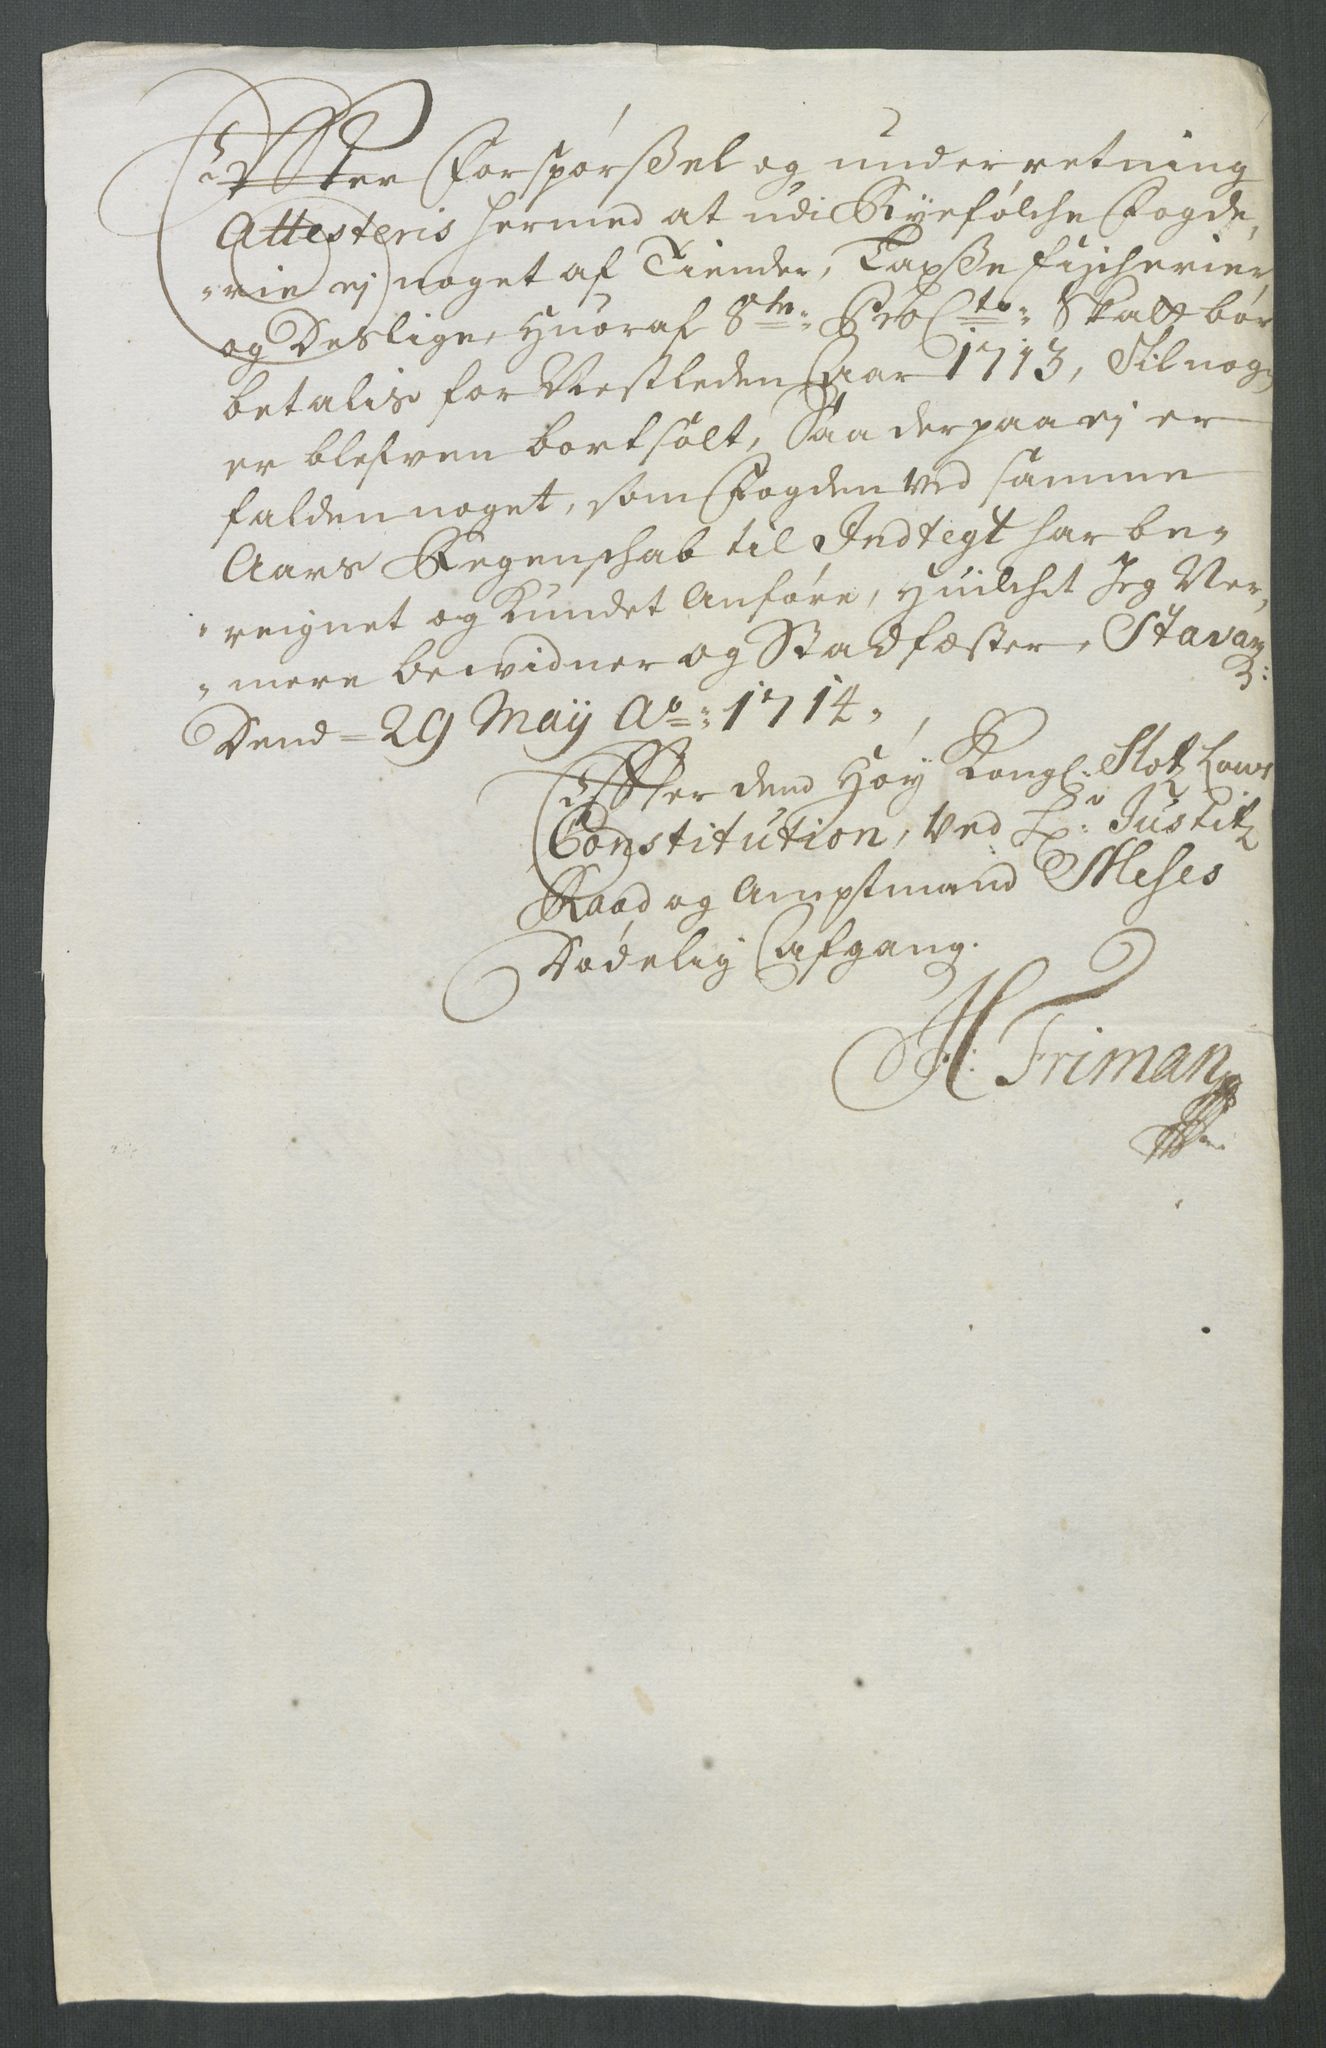 Effter Forspørßel og underretning
Attesteris hermed at udi Ryefølche Fogde,
rie ej noget af Tiender, Laxße fischerier
og Deslige, Huoraf 8te: Pro Cto: Skatt bør
betalis for Nestleden Aar 1713, Til nogen
er blefven bortsolt, Saa der paa ej er
falden noget, som Fogden ved samme
Aars Regenschab til Indtegt har be-
reignet og Kundet Anføre, Huilchet Jeg Ner,
mere bevidner og Stadfæster, Stavang:
Dend 29 Maij Ao: 1714.
Effter dend Høy Kongl: Slotz Lows
Constitution, ved Hr: Justitz
Raad og Amptmand Meses
Dødelig Afgang.
H: Friman